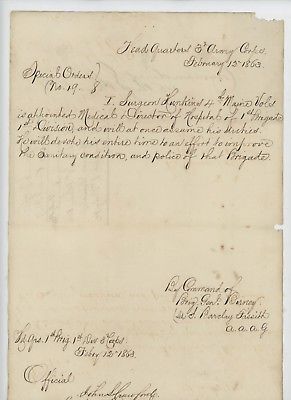 Head Quarters 3d Army Corps
February 12th 1863.
Special Orders
No. 19 - 8
I. Surgeon Hunkins 4th Maine Vols
is appointed Medical Director of Hospital of 1st Brigade
1st Division and will at once assume his duties.
He will devote his entire time to an effort to improve
the Sanitary condition, and police of that Brigade.
By Command of
Brig Genl. Birney
F. Birney
A.A.A.G
Hd Qrs. 1st Brig 1st Div 3 Corps
Feby 12th 1863.
Official
John S Crawford